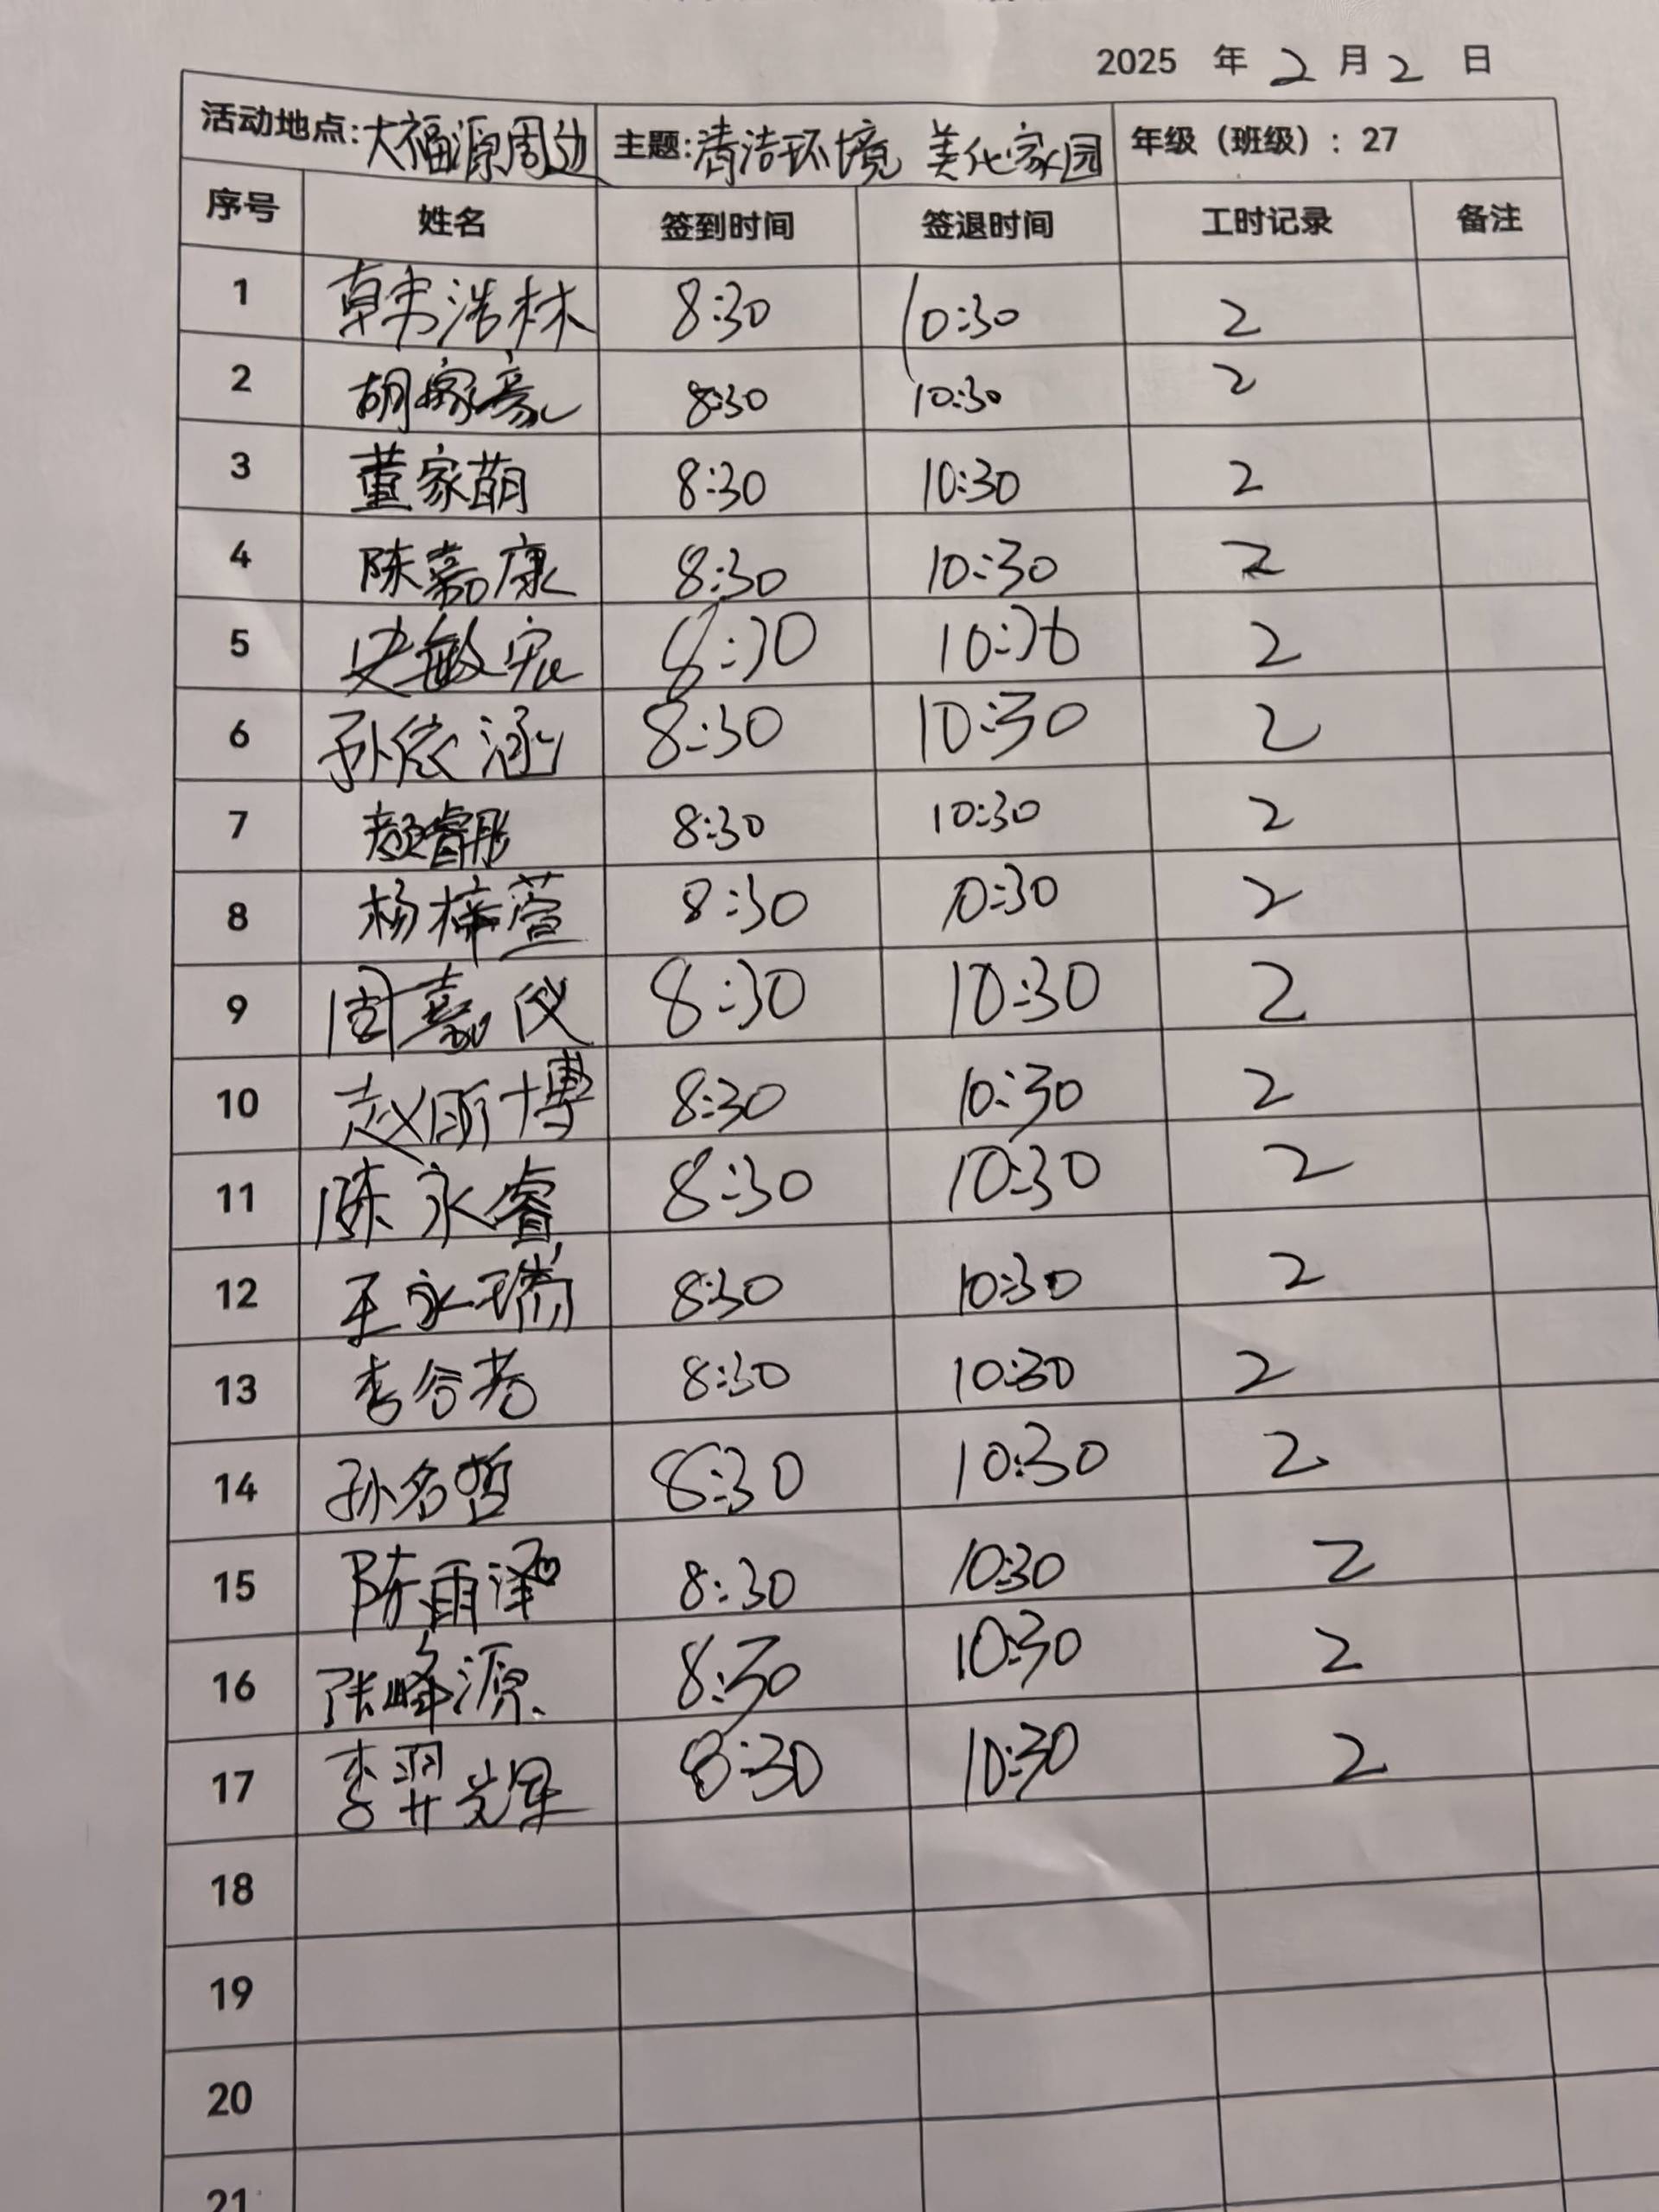 2025 年 2 月 2 日
活动地点:大福源周边 主题:清洁环境 美化家园 年级（班级）: 27
序号 姓名 签到时间 签退时间 工时记录 备注
1 韩浩林 8:30 10:30 2
2 胡家豪 8:30 10:30 2
3 董家萌 8:30 10:30 2
4 陈嘉康 8:30 10:30 2
5 史敏宏 8:30 10:30 2
6 孙依涵 8:30 10:30 2
7 颜睿彤 8:30 10:30 2
8 杨梓萱 8:30 10:30 2
9 周嘉仪 8:30 10:30 2
10 赵 博 8:30 10:30 2
11 陈永睿 8:30 10:30 2
12 王永瑞 8:30 10:30 2
13 李 8:30 10:30 2
14 孙名哲 8:30 10:30 2
15 陈雨泽 8:30 10:30 2
16 张峰源 8:30 10:30 2
17 李羿光果 8:30 10:30 2
18
19
20
21